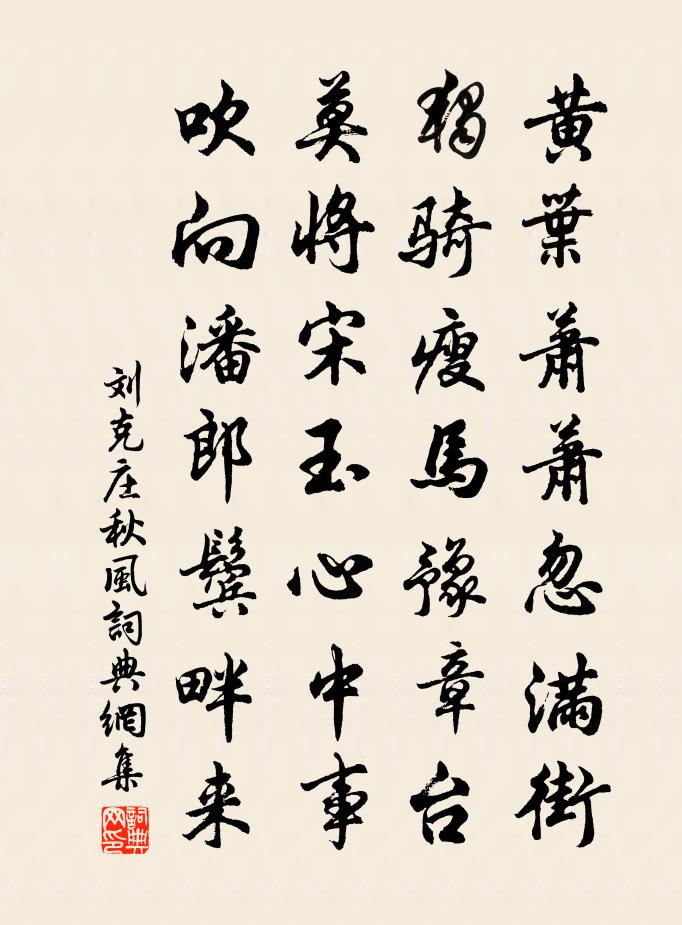 黃葉蕭蕭忽滿街
獨騎瘦馬豫章台
莫將宋玉心中事
吹向潘郎鬢畔来
刘克庄秋風詞典網集
詞典网印